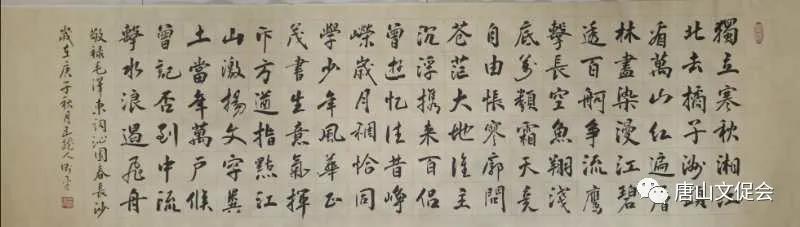 獨立寒秋湘江
北去橘子洲頭
看萬山紅遍層
林盡染漫江碧
透百舸争流鷹
擊長空魚翔淺
底萬類霜天竞
自由悵寒廓問
苍茫大地谁主
沉浮携来百侣
曾遊忆往昔峥
嵘歲月稠恰同
學少年風華正
茂書生意氣揮
斥方遒指點江
山激揚文字糞
土當年萬户侯
曾記否到中流
擊水浪遏飛舟
敬禄毛澤東詞沁園春長沙
歲在庚子秋月
唐山文促会